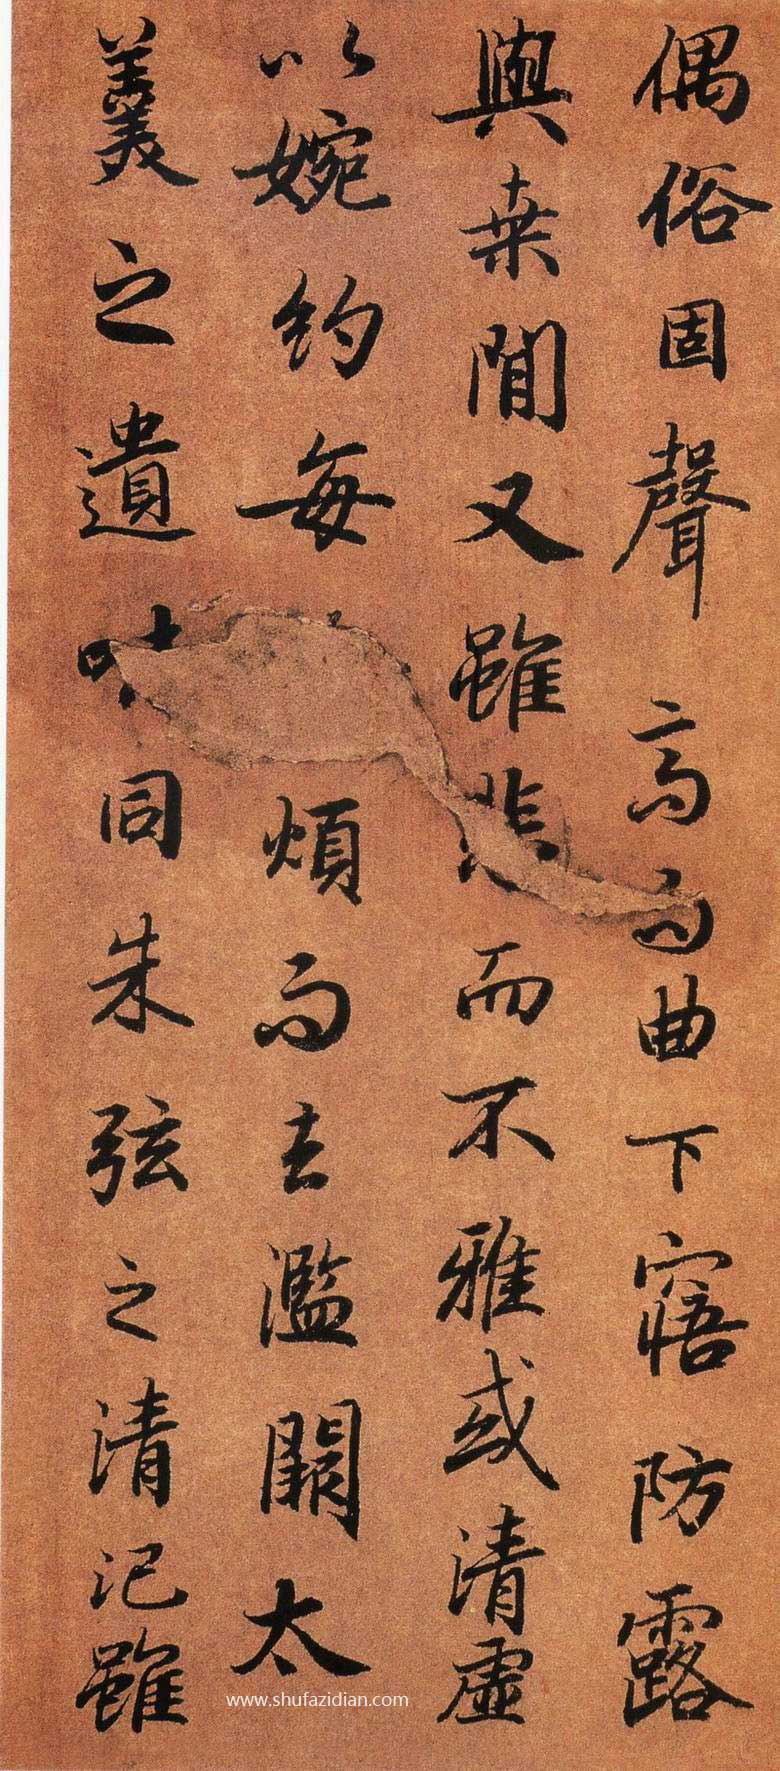 偶俗固聲高而曲下寤防露
與桒間又雖悲而不雅或清虛
以婉約每煩而去濫闕太
羹之遺味同朱弦之清汜雖
www.shufazidian.com